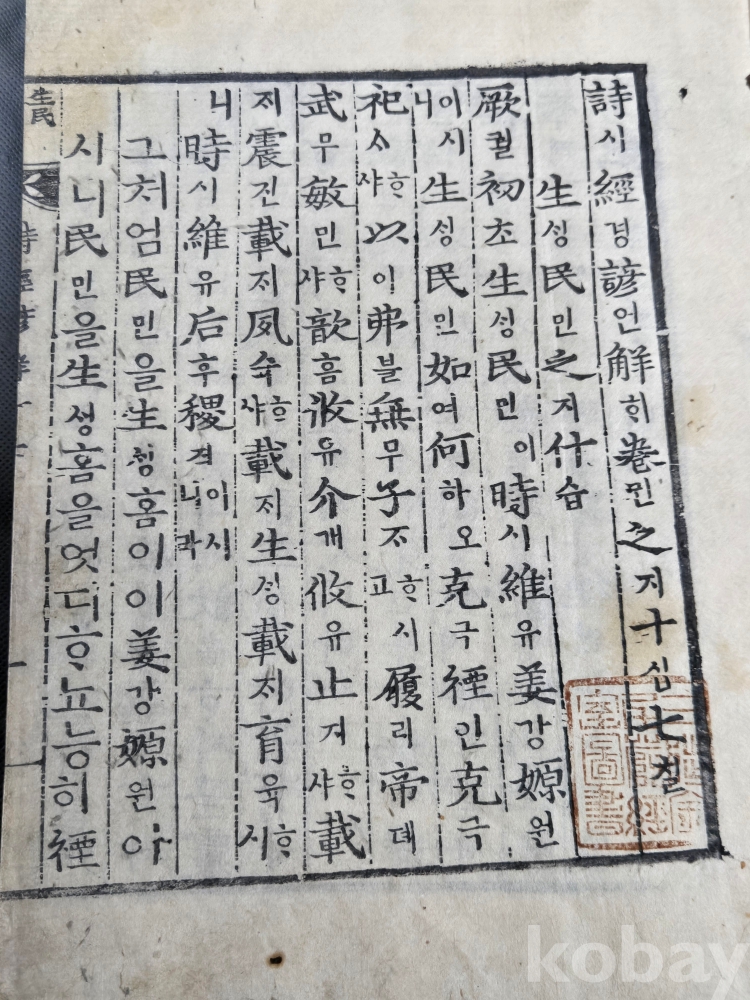 詩시經경諺언解ᄒᆡ卷권之지十십七칠
生ᄉᆡᆼ民민之지什습
厥궐初초生ᄉᆡᆼ民민이時시維유姜강嫄원
이시니生ᄉᆡᆼ民민如여何하오克극禋인克극
祀ᄉᆞᄒᆞ샤以이弗불無무子ᄌᆞᄒᆞ고시履리帝뎨
武무敏민ᄒᆞ샤歆흠攸유介개攸유止지ᄒᆞ샤載
ᄌᆡ震진載ᄌᆡ夙슉ᄒᆞ샤載ᄌᆡ生ᄉᆡᆼ載ᄌᆡ育육ᄒᆞ시
니時시維유后후稷직이시니라
그처엄民민을生ᄉᆡᆼ홈이이姜강嫄원이
시니民민을生ᄉᆡᆼ홈을엇디ᄒᆞ뇨능히禋
生民
詩經諺解十七
一
kobay